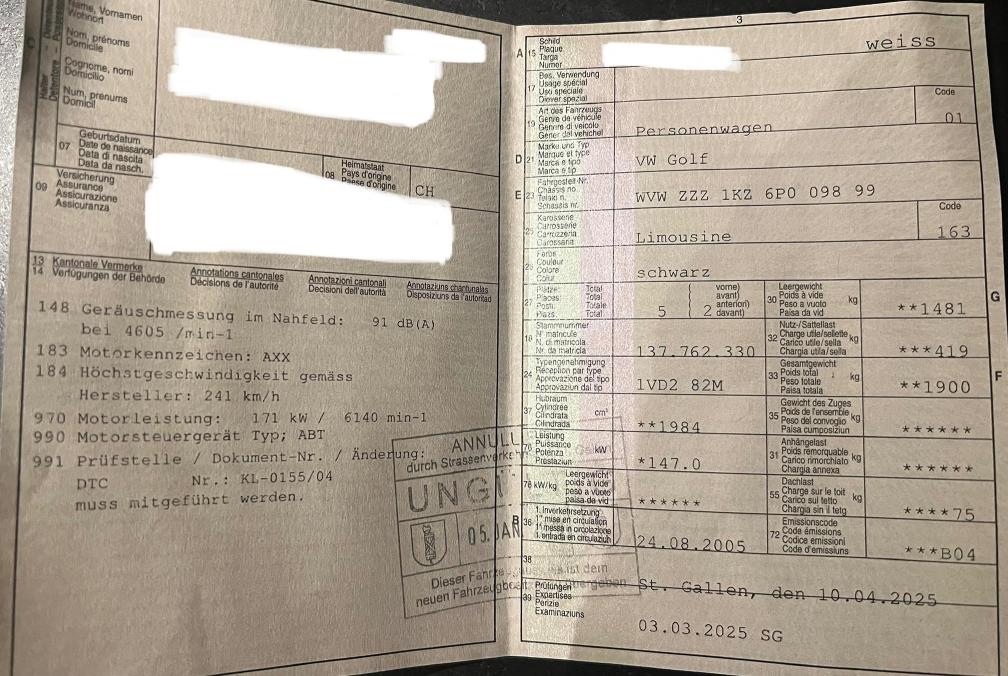 Name, Vornamen
Wohnort
Nom, prénoms
Domicile
Cognome, nomi
Domicilio
Num, prenums
Domicil
07
Geburtsdatum
Date de naissance
Data di nascita
Data da nasch.
08
Heimatstaat
Pays d'origine
Paese d'origine
CH
09
Versicherung
Assurance
Assicurazione
Assicuranza
13 Kantonale Vermerke
14 Verfügungen der Behörde
Annotations cantonales
Décisions de l'autorité
Annotazioni cantonali
Decisioni dell'autorità
Annotaziuns chantunalas
Disposiziuns da l'autoritad
148 Geräuschmessung im Nahfeld: 91 dB(A)
bei 4605 /min-1
183 Motorkennzeichen: AXX
184 Höchstgeschwindigkeit gemäss
Hersteller: 241 km/h
970 Motorleistung: 171 kW / 6140 min-1
990 Motorsteuergerät Typ; ABT
991 Prüfstelle / Dokument-Nr. / Änderung:
DTC Nr.: KL-0155/04
muss mitgeführt werden.
ANNULL
durch Strassenverkehr
UNGÜ
05. JAN
Dieser Fahrze ist dem
neuen Fahrzeug übergeben
3
A 15
Schild
Plaque
Targa
Numer
weiss
17
Bes. Verwendung
Usage spécial
Uso speciale
Diever spezial
19
Art des Fahrzeugs
Genre de véhicule
Genere di veicolo
Gener del vehichel
Personenwagen
Code
01
D 21
Marke und Typ
Marque et type
Marca e tipo
Marca e tip
VW Golf
E 23
Fahrgestell-Nr.
Châssis no.
Telaio n.
Schassis nr.
WVW ZZZ 1KZ 6P0 098 99
25
Karosserie
Carrosserie
Carrozzeria
Carossaria
Limousine
Code
163
26
Farbe
Couleur
Colore
Colur
schwarz
27
Plätze Total
Places Total
Posti Totale
Plazs Total
5
vorne)
avant)
anteriori)
davant)
2
30
Leergewicht
Poids à vide
Peso a vuoto
Paisa da vid
kg
**1481
G
18
Stammnummer
N° matricule
N. di matricola
Nr. da matricla
137.762.330
32
Nutz-/Sattellast
Charge utile/sellette
Carico utile/sella
Chargia utila/sella
kg
***419
24
Typengenehmigung
Réception par type
Approvazione del tipo
Approvaziun dal tip
1VD2 82M
33
Gesamtgewicht
Poids total
Peso totale
Paisa totala
kg
**1900
F
37
Hubraum
Cylindrée
Cilindrata
cm³
**1984
35
Gewicht des Zuges
Poids de l'ensemble
Peso del convoglio
Paisa cumposiziun
kg
******
76
Leistung
Puissance
Potenza
Prestaziun
kW
*147.0
31
Anhängelast
Poids remorquable
Carico rimorchiato
Chargia annexa
kg
******
78 kW/kg
Leergewicht
poids à vide
peso a vuoto
paisa da vid
******
55
Dachlast
Charge sur le toit
Carico sul tetto
Chargia sin il tetg
kg
****75
B 36
1. Inverkehrsetzung
1re mise en circulation
1a messa in circolazione
1. entrada en circulaziun
24.08.2005
72
Emissionscode
Code émissions
Codice emissioni
Code d'emissiuns
***B04
38
St. Gallen, den 10.04.2025
39
Prüfungen
Expertises
Perizie
Examinaziuns
03.03.2025 SG